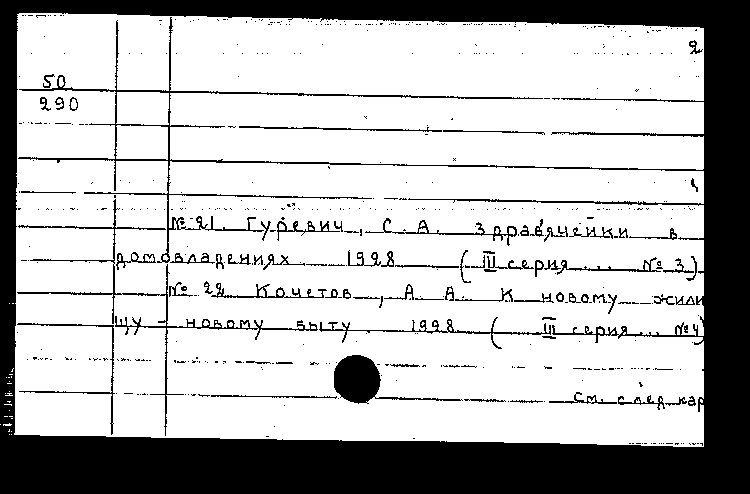 2
50
290
№ 21. Гуревич, С. А. Здравячейки в
домовладениях 1928 (III серия ... № 3)
№ 22 Кочетов, А. А. К новому жили
щу - новому быту. 1928 (III серия ... №4)
См. след. кар